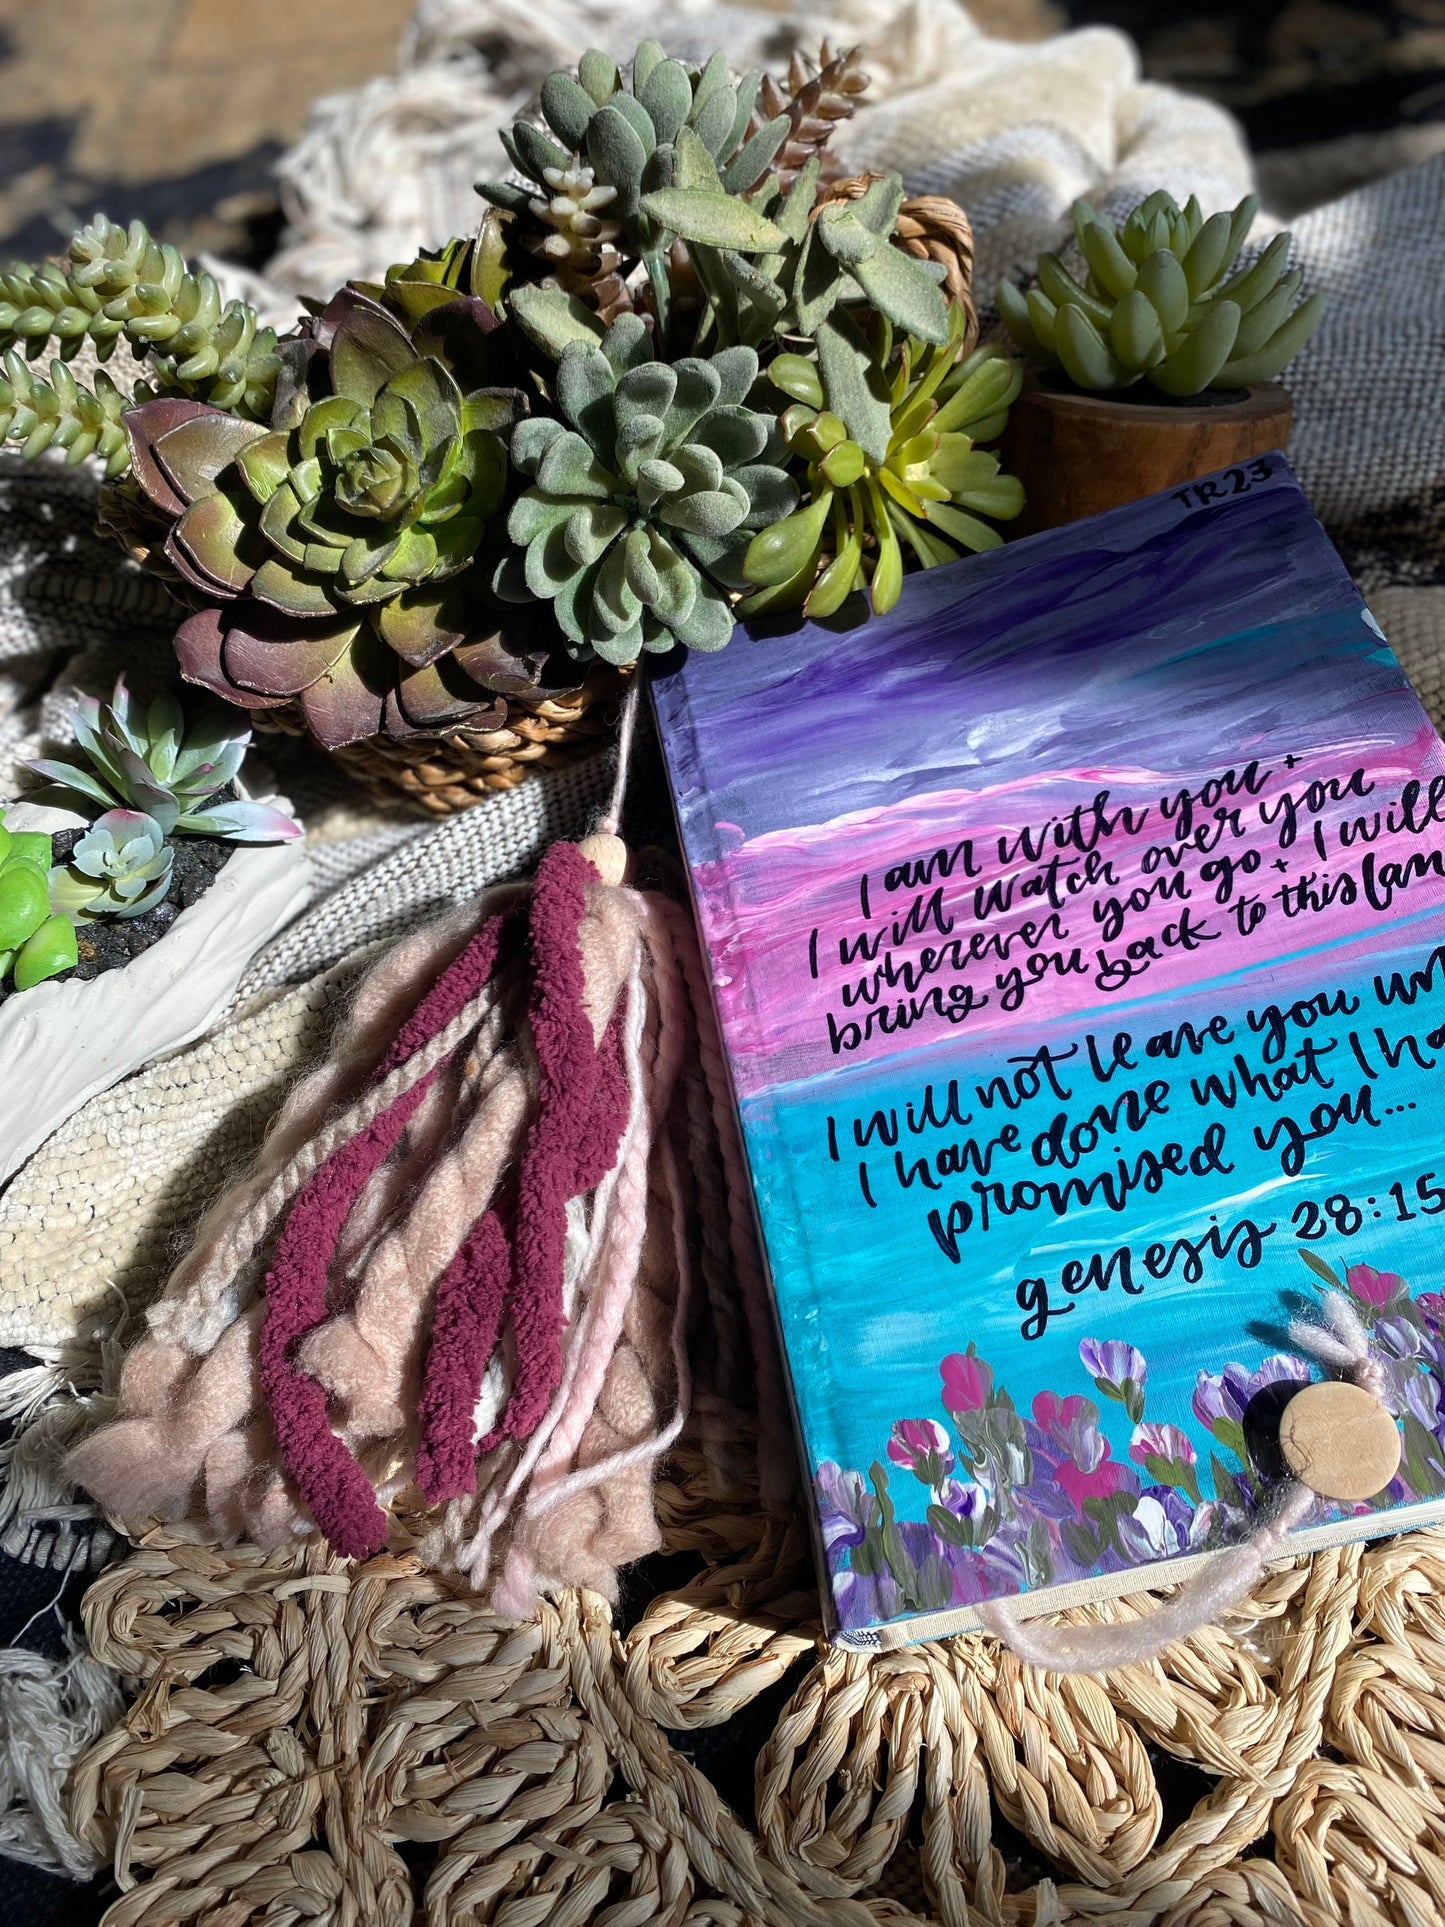 TR23
I am with you +
I will watch over you
wherever you go + I will
bring you back to this
I will not leave you
I have done what I
promised you...
genesis 28:15